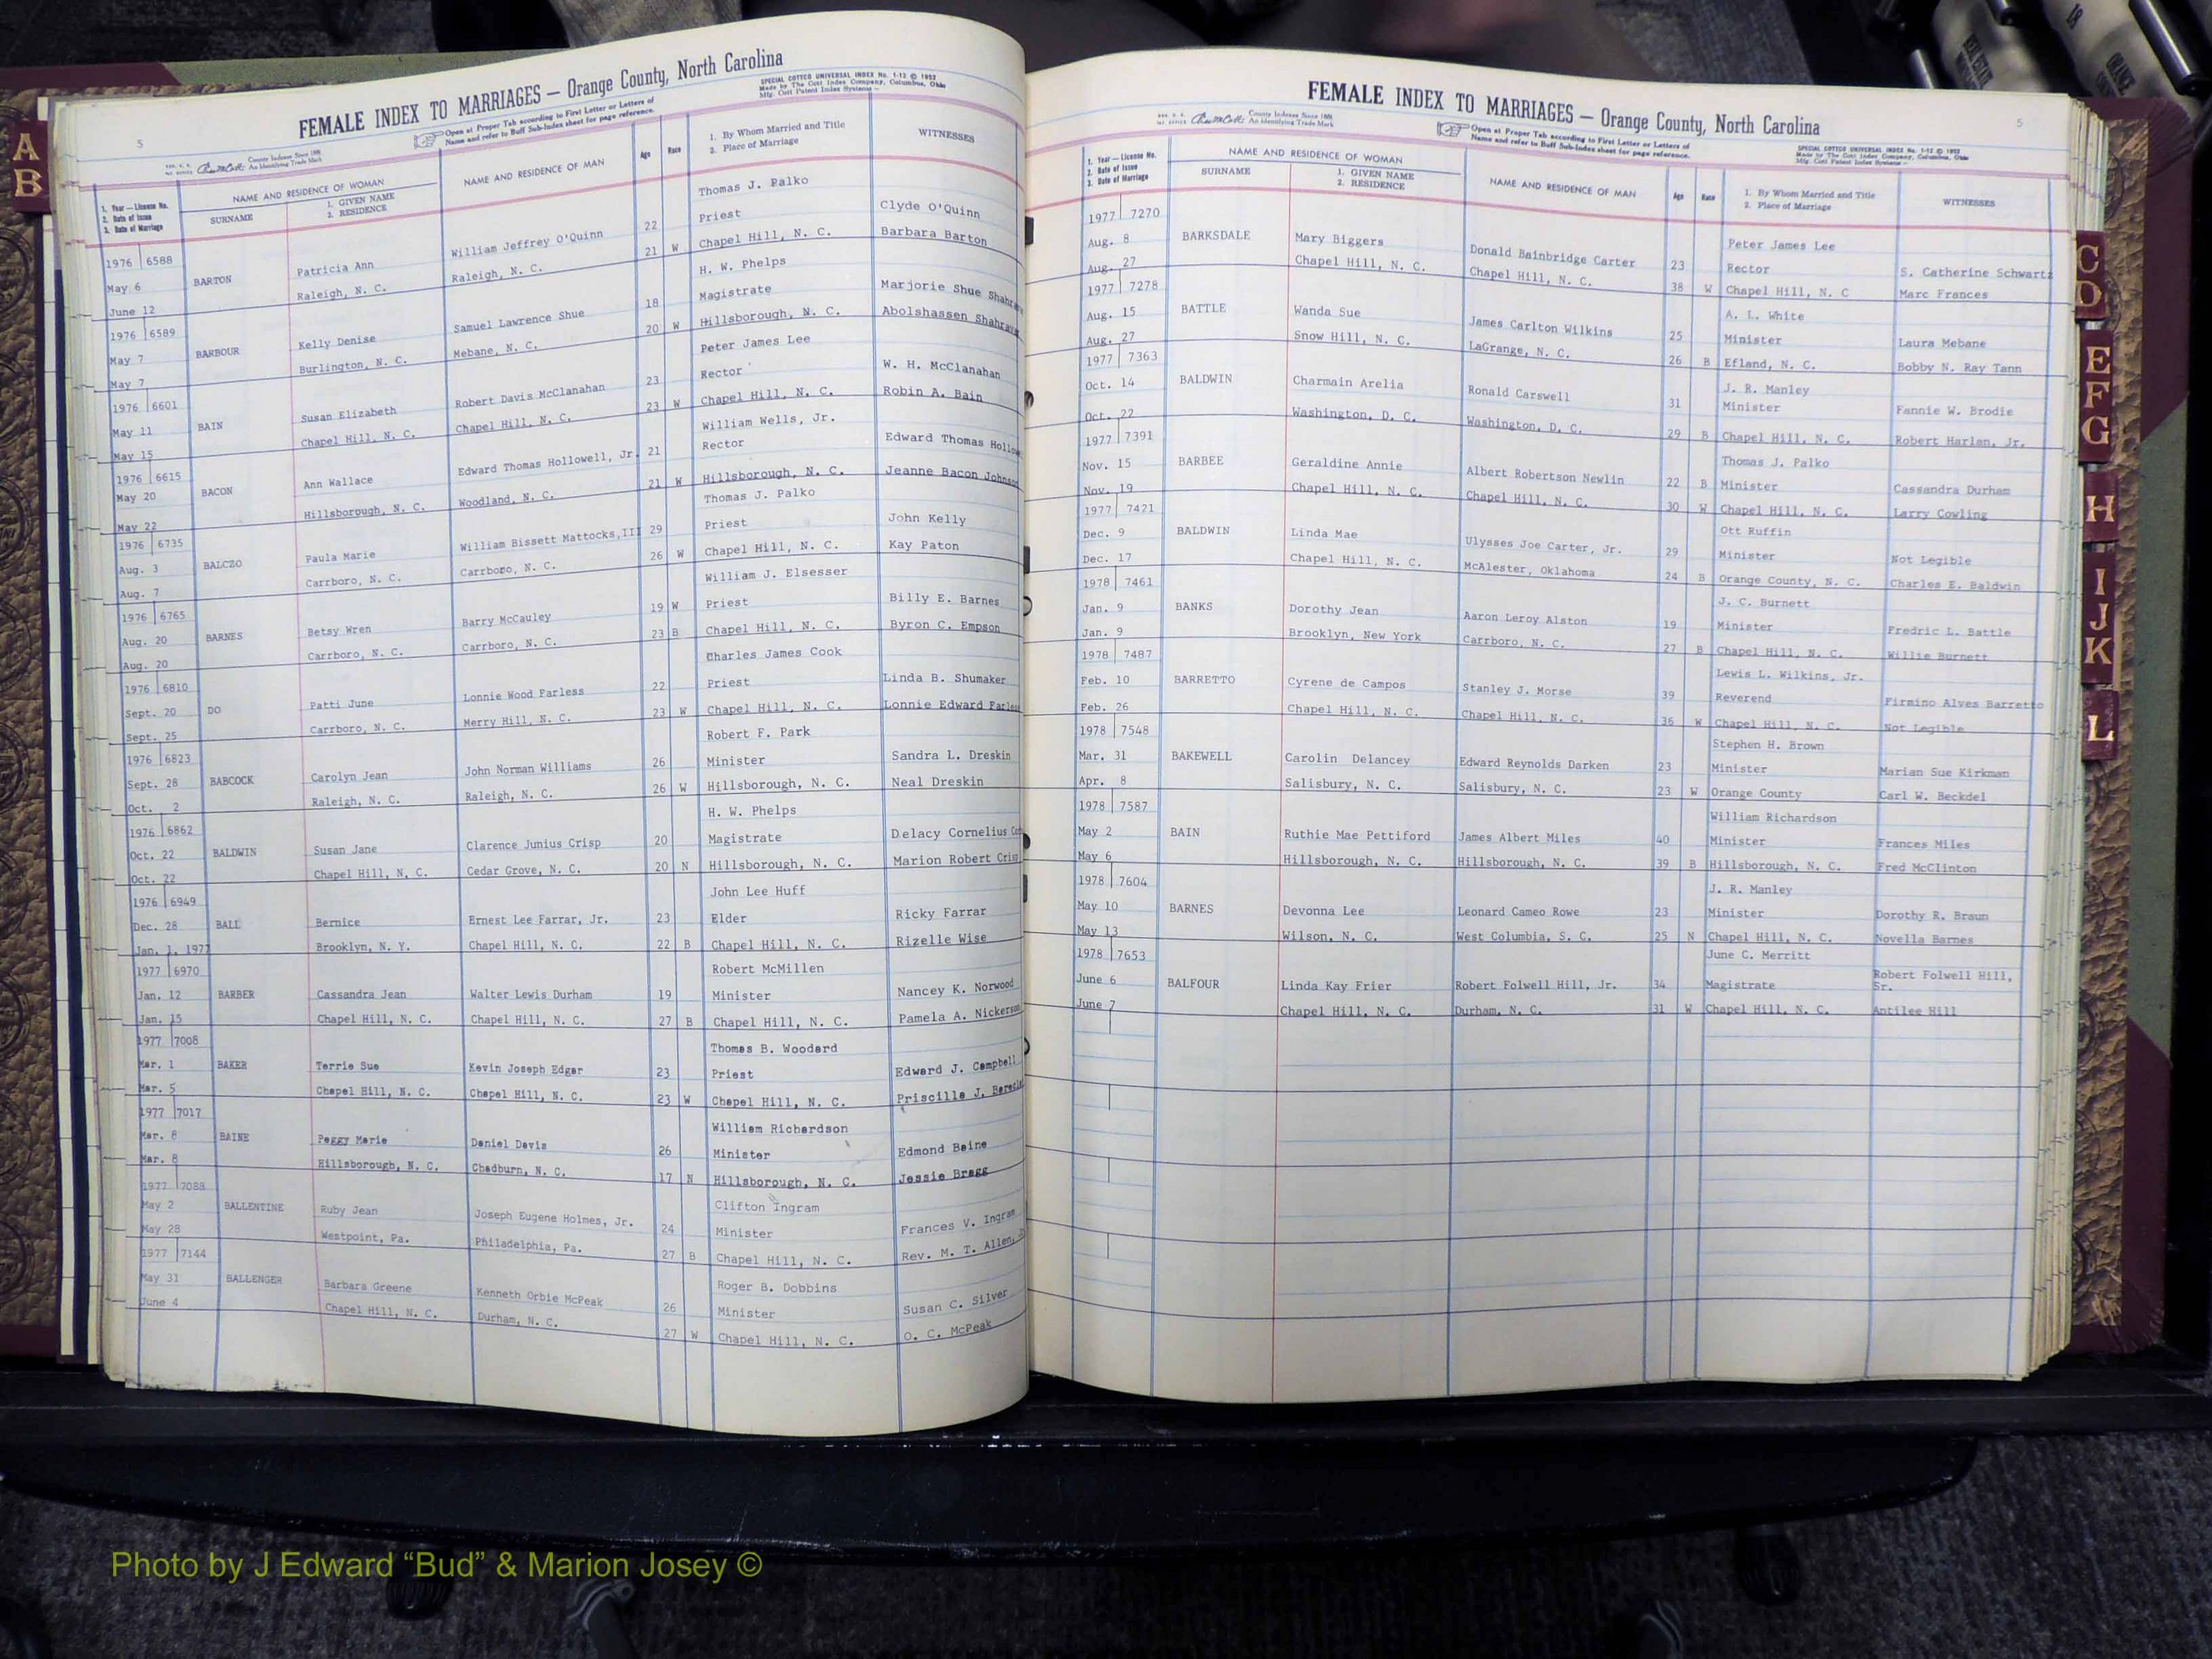 FEMALE INDEX TO MARRIAGES — Orange County, North Carolina
SPECIAL COTTCO UNIVERSAL INDEX No. 1-12 © 1952
Made by The Cott Index Company, Columbus, Ohio
Mfg. Cott Patent Index Systems —
Open at Proper Tab according to First Letter or Letters of
Name and refer to Buff Sub-Index sheet for page reference.
County Indexes Since 1888
An Identifying Trade Mark
5
1. Year — License No.
2. Date of Issue
3. Date of Marriage
NAME AND RESIDENCE OF WOMAN
SURNAME
1. GIVEN NAME
2. RESIDENCE
NAME AND RESIDENCE OF MAN
Age
Race
1. By Whom Married and Title
2. Place of Marriage
WITNESSES
Thomas J. Palko
1976 6588 William Jeffrey O'Quinn 22 Priest Clyde O'Quinn
May 6 BARTON Patricia Ann Raleigh, N. C. 21 W Chapel Hill, N. C. Barbara Barton
June 12 Raleigh, N. C.
H. W. Phelps
1976 6589 Samuel Lawrence Shue 18 Magistrate Marjorie Shue
May 7 BARBOUR Kelly Denise Mebane, N. C. 20 W Hillsborough, N. C. Abolshassen
May 7 Burlington, N. C.
Peter James Lee
1976 6601 Robert Davis McClanahan 23 Rector W. H. McClanahan
May 11 BAIN Susan Elizabeth Chapel Hill, N. C. 23 W Chapel Hill, N. C. Robin A. Bain
May 15 Chapel Hill, N. C.
William Wells, Jr.
1976 6615 Edward Thomas Hollowell, Jr. 21 Rector Edward Thomas
May 20 BACON Ann Wallace Woodland, N. C. 21 W Hillsborough, N. C. Jeanne Bacon Johnson
May 22 Hillsborough, N. C.
Thomas J. Palko
1976 6735 William Bissett Mattocks,III 29 Priest John Kelly
Aug. 3 BALCZO Paula Marie Carrboro, N. C. 26 W Chapel Hill, N. C. Kay Paton
Aug. 7 Carrboro, N. C.
William J. Elsesser
1976 6765 Barry McCauley 19 W Priest Billy E. Barnes
Aug. 20 BARNES Betsy Wren Carrboro, N. C. 23 B Chapel Hill, N. C. Byron C. Empson
Aug. 20 Carrboro, N. C.
Charles James Cook
1976 6810 Lonnie Wood Farless 22 Priest Linda B. Shumaker
Sept. 20 DO Patti June Merry Hill, N. C. 23 W Chapel Hill, N. C. Lonnie Edward Farless
Sept. 25 Carrboro, N. C.
Robert F. Park
1976 6823 John Norman Williams 26 Minister Sandra L. Dreskin
Sept. 28 BABCOCK Carolyn Jean Raleigh, N. C. 26 W Hillsborough, N. C. Neal Dreskin
Oct. 2 Raleigh, N. C.
H. W. Phelps
1976 6862 Clarence Junius Crisp 20 Magistrate Delacy Cornelius
Oct. 22 BALDWIN Susan Jane Cedar Grove, N. C. 20 N Hillsborough, N. C. Marion Robert Crisp
Oct. 22 Chapel Hill, N. C.
John Lee Huff
1976 6949
Dec. 28 BALL Bernice Ernest Lee Farrar, Jr. 23 Elder Ricky Farrar
Jan. 1, 1977 Brooklyn, N. Y. Chapel Hill, N. C. 22 B Chapel Hill, N. C. Rizelle Wise
1977 6970 Robert McMillen
Jan. 12 BARBER Cassandra Jean Walter Lewis Durham 19 Minister Nancey K. Norwood
Jan. 15 Chapel Hill, N. C. Chapel Hill, N. C. 27 B Chapel Hill, N. C. Pamela A. Nickerson
1977 7008 Thomas B. Woodard
Mar. 1 BAKER Terrie Sue Kevin Joseph Edgar 23 Priest Edward J. Campbell
Mar. 5 Chapel Hill, N. C. Chapel Hill, N. C. 23 W Chapel Hill, N. C. Priscilla J.
1977 7017 William Richardson
Mar. 8 BAINE Peggy Marie Daniel Davis 26 Minister Edmond Baine
Mar. 8 Hillsborough, N. C. Chadburn, N. C. 17 N Hillsborough, N. C. Jessie Bragg
1977 7088 Clifton Ingram
May 2 BALLENTINE Ruby Jean Joseph Eugene Holmes, Jr. 24 Minister Frances V. Ingram
May 28 Westpoint, Pa. Philadelphia, Pa. 27 B Chapel Hill, N. C. Rev. M. T. Allen,
1977 7144 Roger B. Dobbins
May 31 BALLENGER Barbara Greene Kenneth Orbie McPeak 26 Minister Susan C. Silver
June 4 Chapel Hill, N. C. Durham, N. C. 27 W Chapel Hill, N. C. O. C. McPeak
FEMALE INDEX TO MARRIAGES — Orange County, North Carolina
County Indexes Since 1888
An Identifying Trade Mark
Open at Proper Tab according to First Letter or Letters of
Name and refer to Buff Sub-Index sheet for page reference.
SPECIAL COTTCO UNIVERSAL INDEX No. 1-12 © 1952
Made by The Cott Index Company, Columbus, Ohio
Mfg. Cott Patent Index Systems —
5
1. Year — License No.
2. Date of Issue
3. Date of Marriage
NAME AND RESIDENCE OF WOMAN
SURNAME
1. GIVEN NAME
2. RESIDENCE
NAME AND RESIDENCE OF MAN
Age
Race
1. By Whom Married and Title
2. Place of Marriage
WITNESSES
1977 7270 Peter James Lee
Aug. 8 BARKSDALE Mary Biggers Donald Bainbridge Carter 23 Rector S. Catherine Schwartz
Aug. 27 Chapel Hill, N. C. Chapel Hill, N. C. 38 W Chapel Hill, N. C Marc Frances
1977 7278 A. L. White
Aug. 15 BATTLE Wanda Sue James Carlton Wilkins 25 Minister Laura Mebane
Aug. 27 Snow Hill, N. C. LaGrange, N. C. 26 B Efland, N. C. Bobby N. Ray Tann
1977 7363 J. R. Manley
Oct. 14 BALDWIN Charmain Arelia Ronald Carswell 31 Minister Fannie W. Brodie
Oct. 22 Washington, D. C. Washington, D. C. 29 B Chapel Hill, N. C. Robert Harlan, Jr.
1977 7391 Thomas J. Palko
Nov. 15 BARBEE Geraldine Annie Albert Robertson Newlin 22 B Minister Cassandra Durham
Nov. 19 Chapel Hill, N. C. Chapel Hill, N. C. 30 W Chapel Hill, N. C. Larry Cowling
1977 7421 Ott Ruffin
Dec. 9 BALDWIN Linda Mae Ulysses Joe Carter, Jr. 29 Minister Not Legible
Dec. 17 Chapel Hill, N. C. McAlester, Oklahoma 24 B Orange County, N. C. Charles E. Baldwin
1978 7461 J. C. Burnett
Jan. 9 BANKS Dorothy Jean Aaron Leroy Alston 19 Minister Fredric L. Battle
Jan. 9 Brooklyn, New York Carrboro, N. C. 27 B Chapel Hill, N. C. Willie Burnett
1978 7487 Lewis L. Wilkins, Jr.
Feb. 10 BARRETTO Cyrene de Campos Stanley J. Morse 39 Reverend Firmino Alves Barretto
Feb. 26 Chapel Hill, N. C. Chapel Hill, N. C. 36 W Chapel Hill, N. C. Not Legible
1978 7548 Stephen H. Brown
Mar. 31 BAKEWELL Carolin Delancey Edward Reynolds Darken 23 Minister Marian Sue Kirkman
Apr. 8 Salisbury, N. C. Salisbury, N. C. 23 W Orange County Carl W. Beckdel
1978 7587 William Richardson
May 2 BAIN Ruthie Mae Pettiford James Albert Miles 40 Minister Frances Miles
May 6 Hillsborough, N. C. Hillsborough, N. C. 39 B Hillsborough, N. C. Fred McClinton
1978 7604 J. R. Manley
May 10 BARNES Devonna Lee Leonard Cameo Rowe 23 Minister Dorothy R. Braun
May 13 Wilson, N. C. West Columbia, S. C. 25 N Chapel Hill, N. C. Novella Barnes
1978 7653 June C. Merritt
June 6 BALFOUR Linda Kay Frier Robert Folwell Hill, Jr. 34 Magistrate Robert Folwell Hill, Sr.
June 7 Chapel Hill, N. C. Durham, N. C. 31 W Chapel Hill, N. C. Antilee Hill
A
B
C
D
E
F
G
H
I
J
K
L
18
Photo by J Edward “Bud” & Marion Josey ©